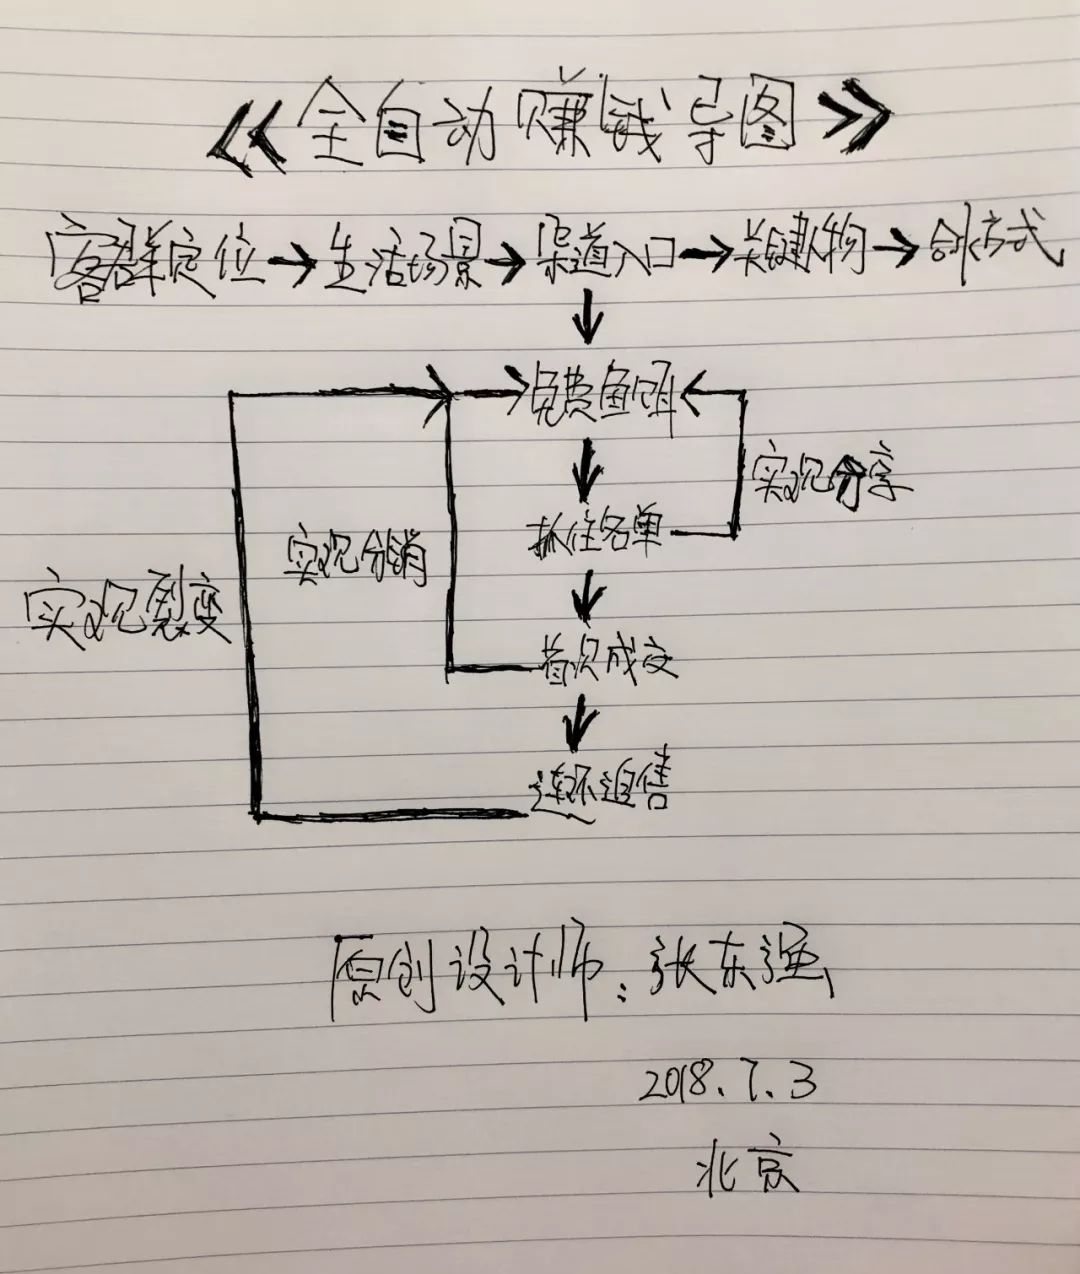 《全自动赚钱导图》
客群定位→生活场景→渠道入口→关键人物→合作方式
免费鱼饵
实现分享
抓住名单
实现分销
实现裂变
首次成交
连环追售
原创设计师：张东强
2018.7.3
北京